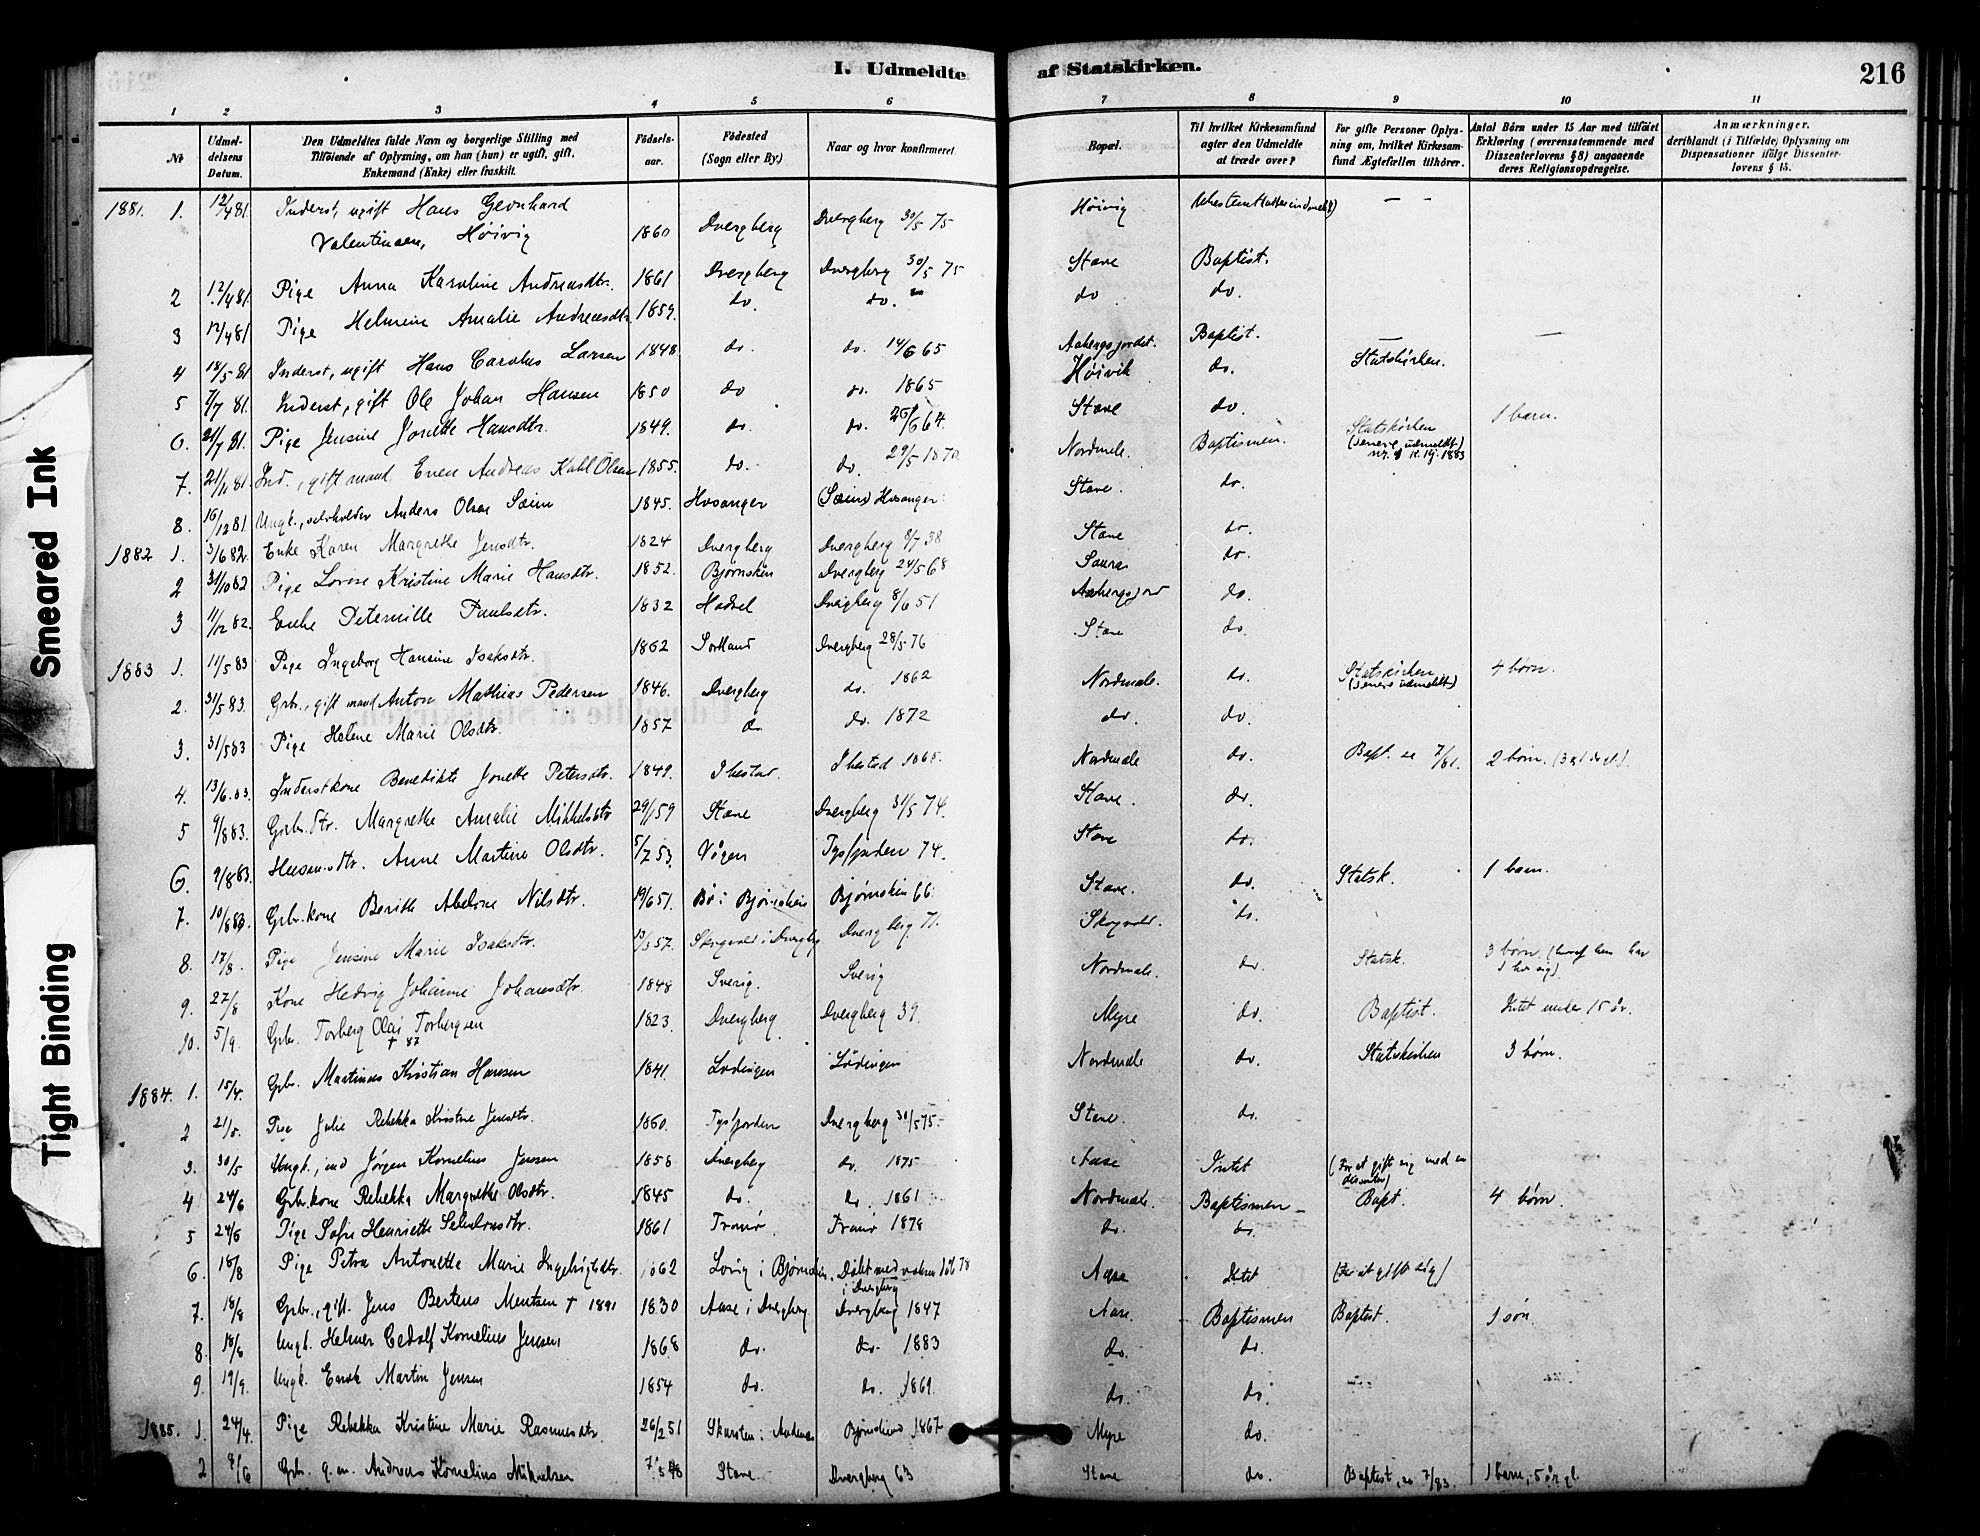 Smeared Ink
Tight Binding
I. Udmeldte af Statskirken.
216
1 2 3 4 5 6 7 8 9 10 11
No
Udmel-
delsens
Datum.
Den Udmeldtes fulde Navn og borgerlige Stilling med
Tilføiende af Oplysning, om han (hun) er ugift, gift.
Enkemand (Enke) eller fraskilt.
Fødsels-
aar.
Fødested
(Sogn eller By.)
Naar og hvor konfirmeret.
Bopæl.
Til hvilket Kirkesamfund
agter den Udmeldte
at træde over?
For gifte Personer Oplys-
ning om, hvilket Kirkesam-
fund Ægtefællen tilhører.
Antal Børn under 15 Aar med tilføiet
Erklæring (overensstemmende med
Dissenterlovens § 8) angaaende
deres Religionsopdragelse.
Anmærkninger.
deriblandt (i Tilfælde) Oplysning om
Dispensationer ifølge Dissenter-
lovens § 15.
1881. 1. 12/4 81. Inderst, ugift Hans Høivig
Valentinsen, Høivig 1860 Dvergberg Dvergberg 30/5 75
2 12/4 81. Pige Anna Karoline Andreasdtr. 1861 Dvergberg Dvergberg 30/5 75 Stave Baptist.
3 12/4 81 Pige Helmine Amalie Andreasdtr. 1859. do. do. do do.
4 18/5 81 Inderst, ugift Hans Carolus Larsen 1848. do. do. 14/6 65 Aabergsjordet. Baptist. —
5 7/7 81. Inderst, gift Ole Johan Hansen 1850 do do. 1865 Høivik do. Statskirken.
6. 21/7 81. Pige Jensine Jonette Hansdtr. 1849. do. do. 26/6 64. Stave do.
7. 21/11 81. Ind., gift mand Even Andreas Kahl Olsen 1855. do. do. 29/5 1870. Nordmele. Baptismen. Statskirken 1 barn.
(senere udmeldt)
8. 16/12 81. Ungk., Anders Olsen Sæim 1845. Hosanger (Sæim) Hosanger Stave. do.
1882 1. 3/6 82. Enke Karen Margrethe Jensdtr. 1824 Dvergberg Dvergberg 8/7 38 Stave do.
2 31/10 82 Pige Lovise Kristine Marie Hansdtr. 1852. Bjørnskin Dvergberg 24/5 68 Saura do.
3 11/12 82. Enke Peternille Paulsdtr. 1832 Hadsel Dvergberg 8/6 51 Aabergsjord do.
1883 1. 11/5 83 Pige Ingeborg Hansine Isaksdtr. 1862 Sortland Dvergberg 28/5 76 Stave do.
2. 31/5 83. Grbr., gift mand Anton Mathias Pedersen 1846. Dvergberg do. 1862 Nordmele. do. Statskirken 4 børn.
(senere udmeldt)
3. 31/5 83 Pige Helene Marie Olsdtr. 1857 do do. 1872 do. do.
4. 13/6 83. Inderstkone Benedikte Jonette Petersdtr. 1849. Ibestad. Ibestad 1865. Nordmele do. Bapt. se 7/81. 2 børn.
5 9/8 83. Grbr.dtr. Margrethe Amalie Mikkelsdtr 29/1 59 Stave Dvergberg 31/5 74. Stave. do.
6. 9/8 83. Husm.dtr. Anne Martine Olsdtr. 5/7 53. Vågen Tysfjorden 74. Stave do.
7. 10/8 83. Grbr.kone Berith Abelone Nilsdtr. 19/6 51. Bø i Bjørnskin Bjørnskin 66. Stave. do. Statsk. 1 barn.
8. 17/8. Pige Jensine Marie Isaksdtr. 13/3 57. Skogvold i Dvergbg Dvergberg 71. Skogvold. do.
9. 27/8 Kone Hedvig Johanne Johansdtr. 1848 Sverig. Sverig Nordmele. do. Statsk. 3 børn (hvoraf hun har
1 hos sig)
10. 5/9. Grbr. Torberg Olai Torbergsen 1823. Dvergberg. Dvergberg 39. Myre do. Baptist. Intet under 15 år.
† 87
1884. 1. 15/4. Grbr. Martinus Kristian Hansen 1841. Lødingen Lødingen Nordmele do. Statskirken 3 børn.
2 21/5. Pige Julie Rebekka Kristine Jensdtr. 1860. Tysfjorden Dvergberg 30/5 75. Stave. do.
3. 30/5 Ungk., ind Jørgen Kornelius Jensen 1858 Dvergberg do. 1875 Aase Intet (For at gift sig med en
dissenter)
4 24/6 Grbr.kone Rebekka Margrethe Olsdtr. 1845 do. do. 1861 Nordmele. Baptismen Bapt. 4 børn.
5 24/6 Pige Sofie Henriette 1861 Tranø Tranø 1878 do. do.
6. 18/8 Pige Petra Antonette Marie Ingebrigtsdtr. 1862 i Bjørnskin. Døbt med voksen
i Dvergberg Aase Intet (For at gift sig)
7. 18/8 Grbr., gift. Jens Berteus Mentsen † 1891 1830 Aase i Dvergberg Dvergberg 1847 Aase. Baptismen Baptist. 1 søn
8. 18/8 Ungk. Helmer Edolf Kornelius Jensen 1868 do. do. 1883 do. do.
9. 19/9. Ungk. Enok Martin Jensen 1854 do. do. 1869. do. do.
1885. 1. 24/4. Pige Rebekka Kristine Marie Rasmusdtr. 26/2 51 Skarsten i Andenes Bjørnskind 1867 Myre do.
2 9/6 Grbr. g.m. Andreas Kornelius Mikkelsen Stave Dvergberg 63 Stave do. Baptist, se 7/83. 1 barn, 5 år gl.